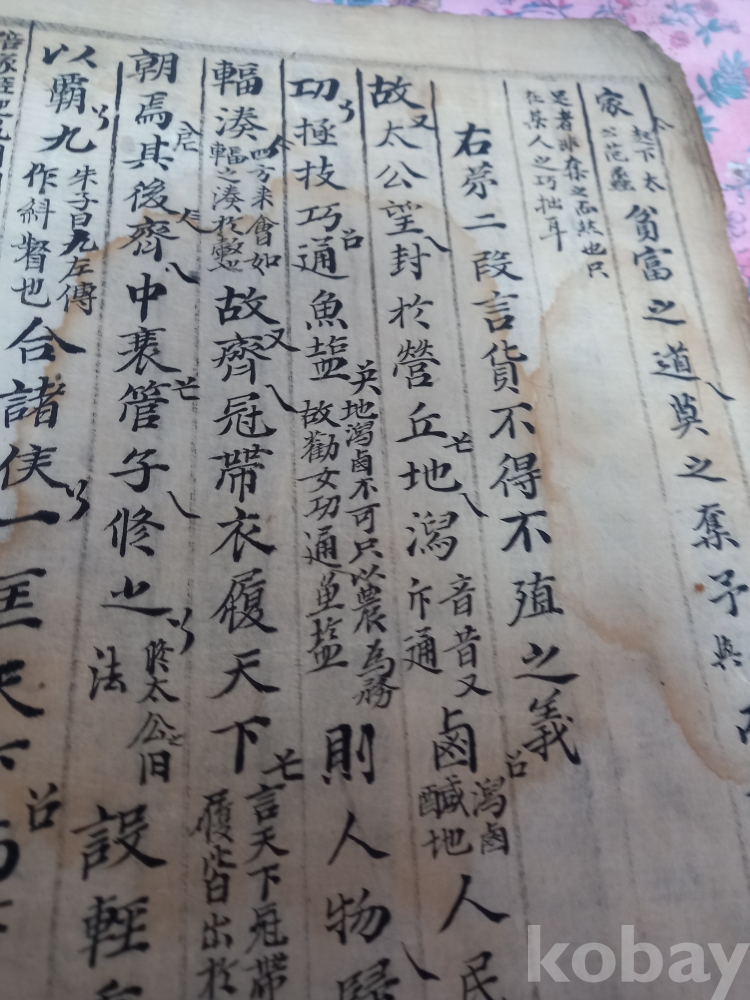 家起下太公范蠡貧富之道莫之奪予與
足者非奪之而然也只在某人之巧拙耳
右苐二段言貨不得不殖之義
故太公望封於營丘地潟音昔又斥通鹵潟鹵鹹地人民
功極技巧通魚塩英地潟鹵不可只以農為務故勸女功通魚塩則人物歸
輻湊四方来會如輻之湊於轂也故齊冠帶衣履天下言天下冠帶履皆出於
朝焉其後齊中衰管子修之修太公旧法設輕
以霸九朱子曰九左傳作糾督也合諸侯一匡天下
kobay